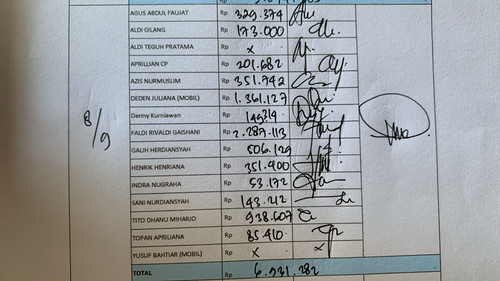 AGUS ABDUL FAUJAT Rp 329.374
ALDI GILANG Rp 173.000
ALDI TEGUH PRATAMA Rp x
APRILLIAN CP Rp 201.682
AZIS NURMUSLIM Rp 351.742
DEDEN JULIANA (MOBIL) Rp 1.361.127
Denny Kurniawan Rp 149.314
FALDI RIVALDI GAISHANI Rp 2.287.113
8/9 GALIH HERDIANSYAH Rp 506.129
HENRIK HENRIANA Rp 351.400
INDRA NUGRAHA Rp 53.172
SANI NURDIANSYAH Rp 143.212
TITO DHANU MIHARJO Rp 938.607
TOPAN APRILIANA Rp 85.410
YUSUF BAHTIAR (MOBIL) Rp x x
TOTAL Rp 6.931.282